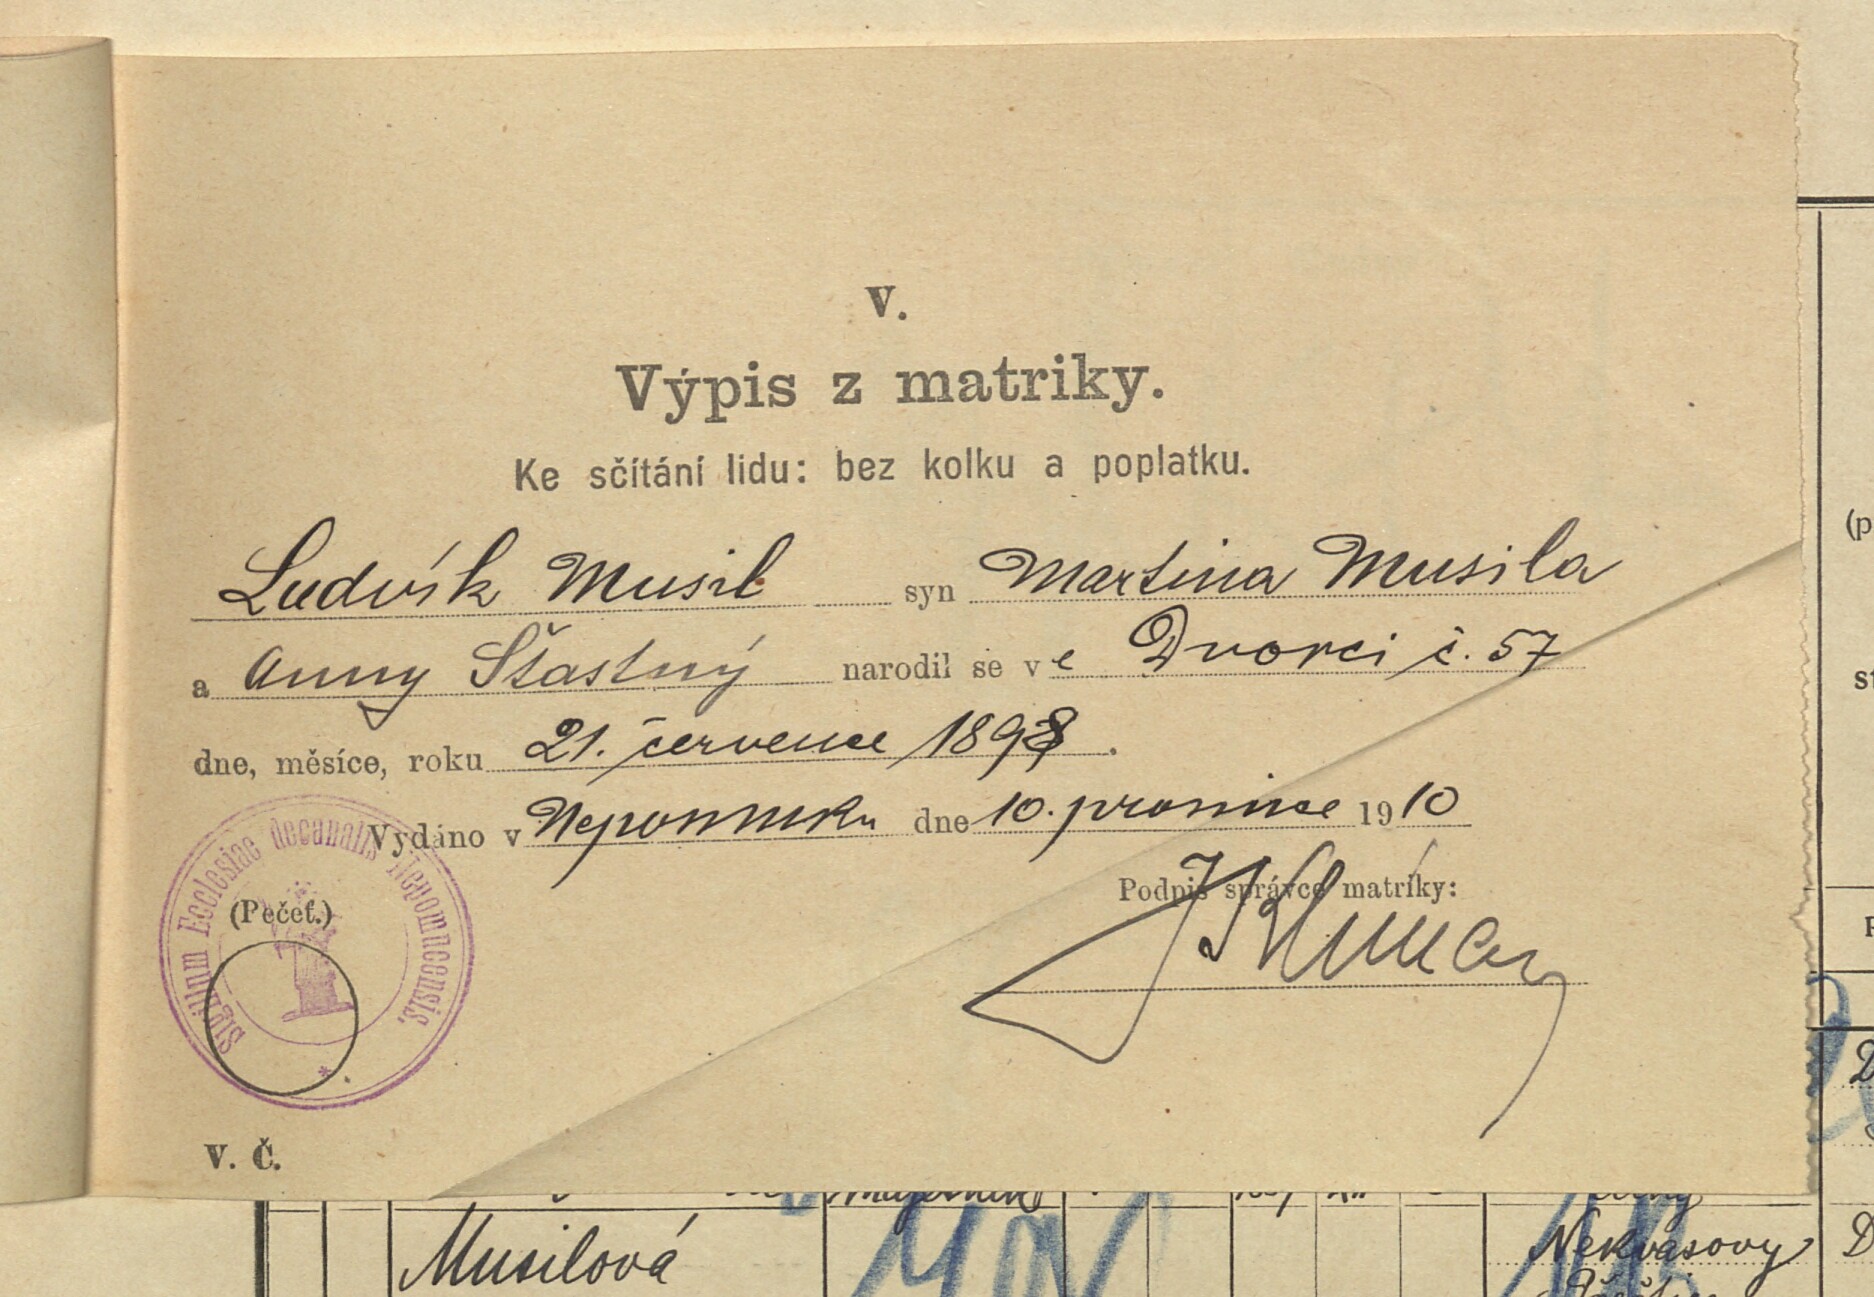 V.
Výpis z matriky.
Ke sčítání lidu: bez kolku a poplatku.
Ludvík Musil syn Martina Musila
a Anny Šťastný narodil se v e Dvorci č. 57
dne, měsíce, roku 21. července 1898.
Vydáno v Nepomuku dne 10. prosince 1910
Podpis správce matriky:
(Pečeť.)
Sigillum Ecclesiae decanalis Nepomucensis.
V. Č.
(p
st
P
D
Musilová
Nekvasovy
D